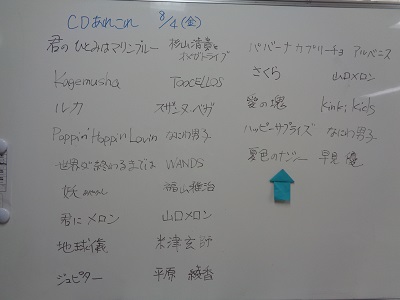 CDあれこれ 8/4(金)
君のひとみはマリンブルー 杉山清貴とオメガトライブ
Kagemusha TOOCELLOS
ルカ スザンヌ・ベガ
Poppin' Hoppin' Lovin なにわ男子
世界が終わるまでは WANDS
妖 福山雅治
君にメロン 山口メロン
地球儀 米津玄師
ジュピター 平原綾香
ババーナ カプリーチョ アルベニス
さくら 山口メロン
愛の塊 Kinki Kids
ハッピーサプライズ なにわ男子
夏色のナンシー 早見優